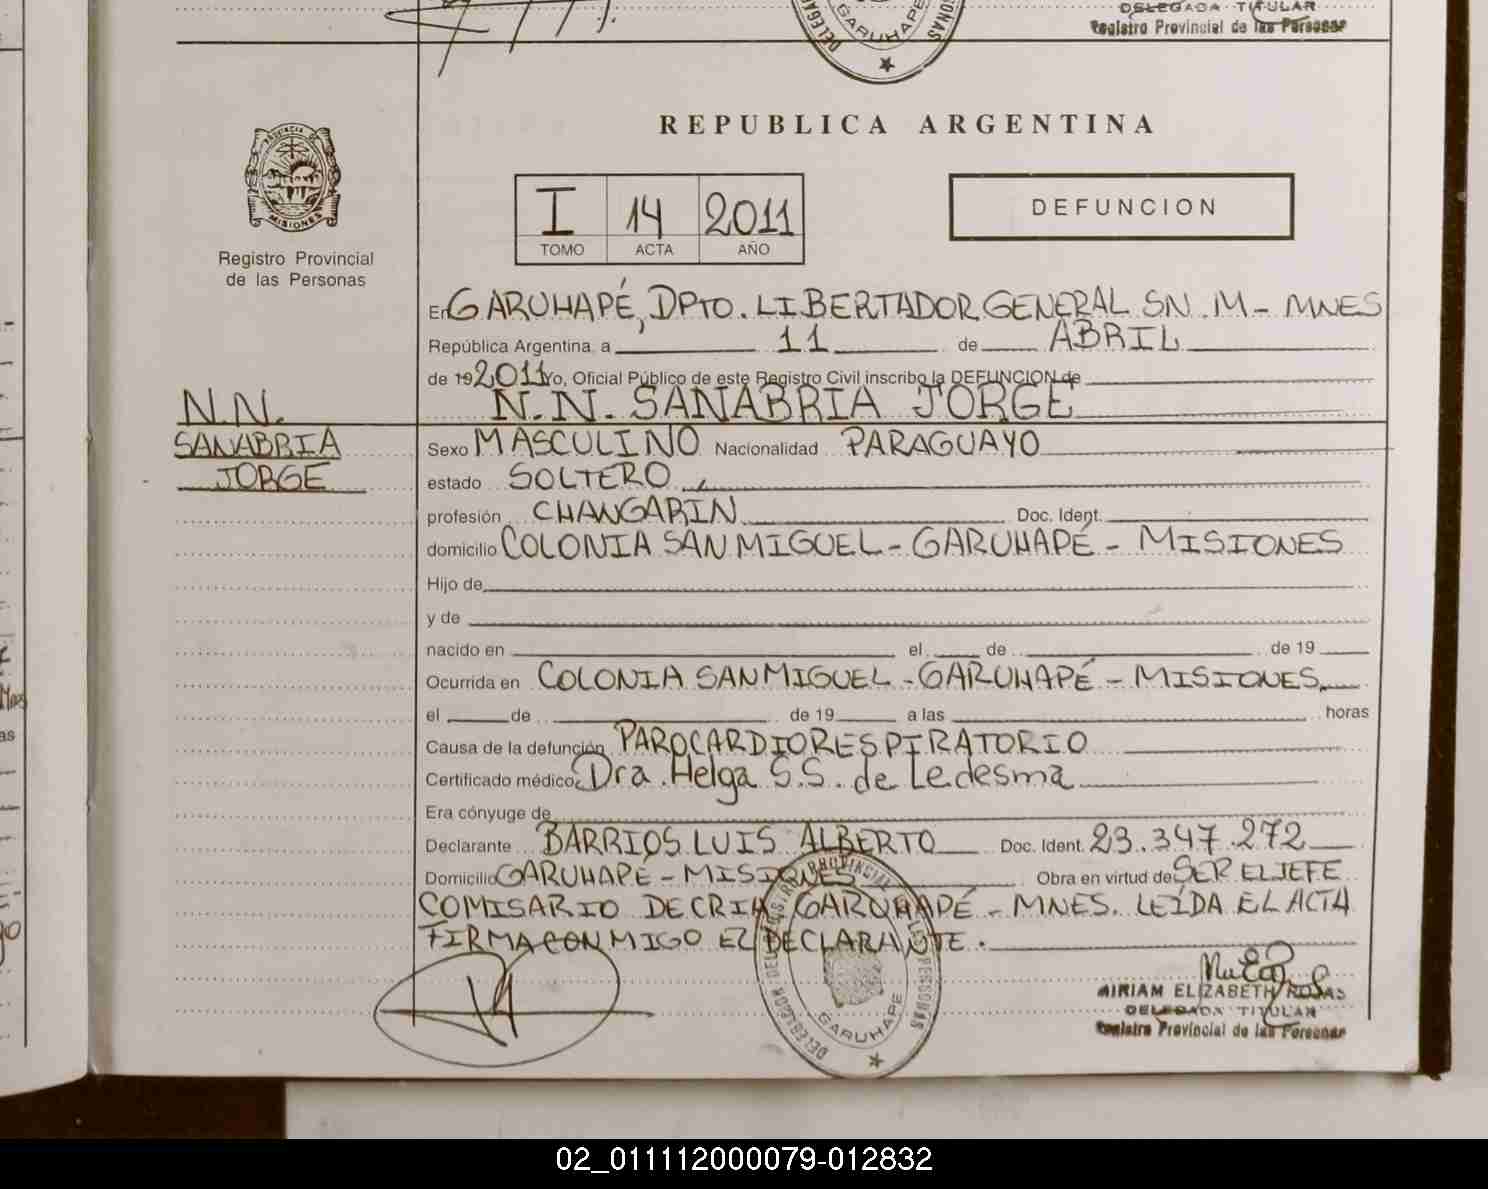 DELEGADA TITULAR
Registro Provincial de las Personas
GARUHAPE
REPUBLICA ARGENTINA
PROVINCIA DE
MISIONES
Registro Provincial
de las Personas
I 14 2011
TOMO ACTA AÑO
DEFUNCION
En GARUHAPÉ, DPTO. LIBERTADOR GENERAL SN. M- MNES
República Argentina, a 11 de ABRIL
de 19 2011 Yo, Oficial Público de este Registro Civil inscribo la DEFUNCION de
N.N. SANABRIA JORGE
N.N.
SANABRIA
JORGE
Sexo MASCULINO Nacionalidad PARAGUAYO
estado SOLTERO
profesión CHANGARIN Doc. Ident.
domicilio COLONIA SAN MIGUEL - GARUHAPÉ - MISIONES
Hijo de
y de
nacido en el de de 19
Ocurrida en COLONIA SAN MIGUEL - GARUHAPÉ - MISIONES
el de de 19 a las horas
Causa de la defunción PAROCARDIORESPIRATORIO
Certificado médico Dra. Helga S.S. de Ledesma
Era cónyuge de
Declarante BARRIOS LUIS ALBERTO Doc. Ident. 23.347.272
Domicilio GARUHAPÉ - MISIONES Obra en virtud de SER EL JEFE
COMISARIO DE CRIA GARUHAPÉ - MNES. LEÍDA EL ACTA
FIRMA CONMIGO EL DECLARANTE.
GARUHAPE
MIRIAM ELIZABETH ROJAS
DELEGADA TITULAR
Registro Provincial de las Personas
02_011112000079-012832